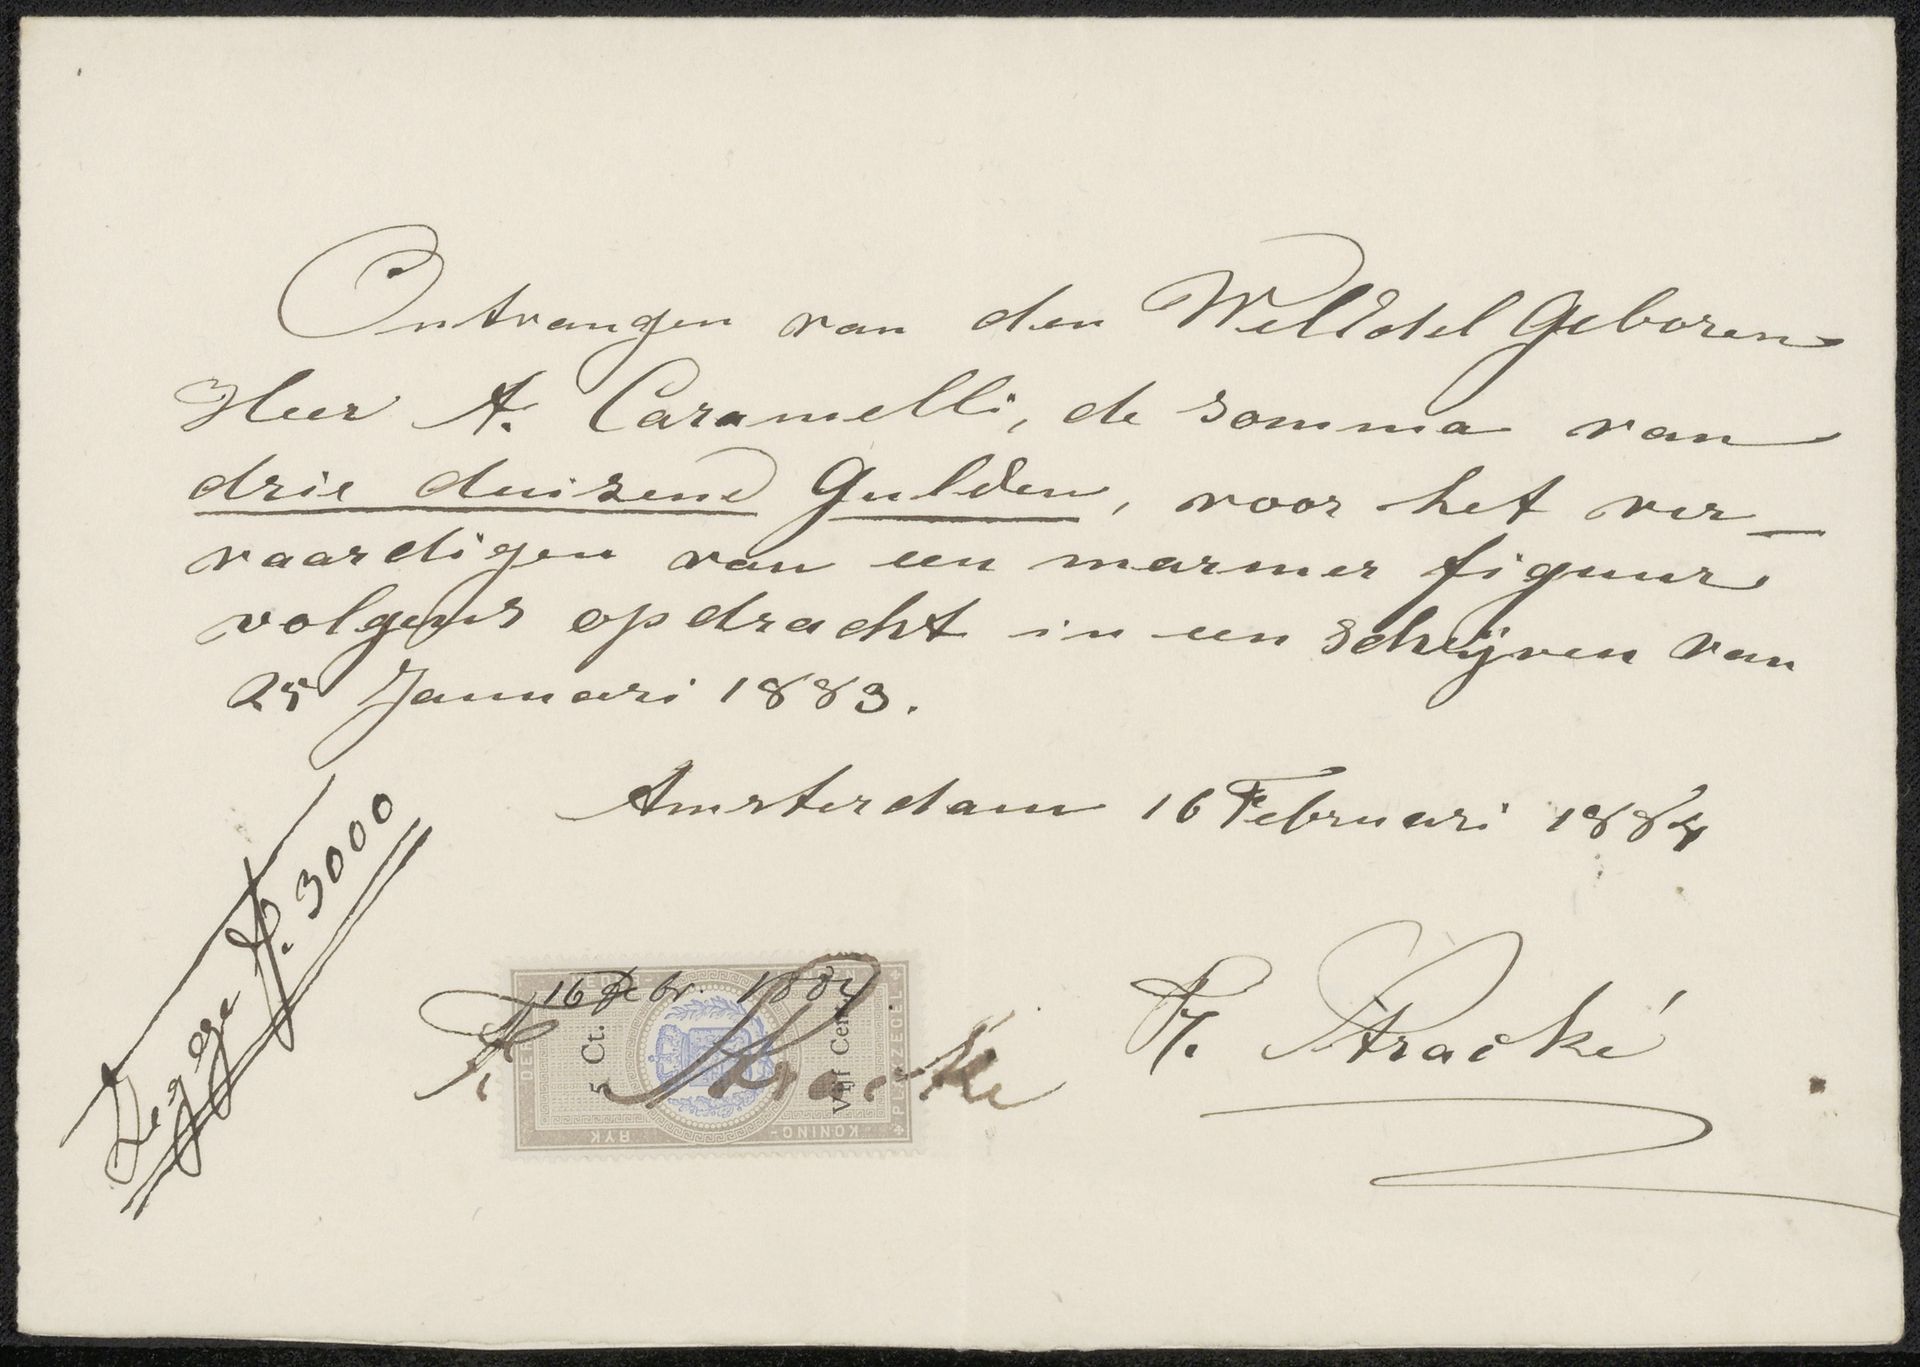 Ontvangen van den WelEdel Geboren
Heer A. Caramelli, de somma van
drie duizend Gulden, voor het ver-
vaardigen van een marmer figuur
volgens opdracht in een schrijven van
25 Januari 1883.
Amsterdam 16 Februari 1884
Zegge f. 3000
16 Febr. 1884
F. Stracké
F. Stracké
5 Ct.
Vijf Cent
NEDER-
KONING-
RYK
PLAKZEGEL